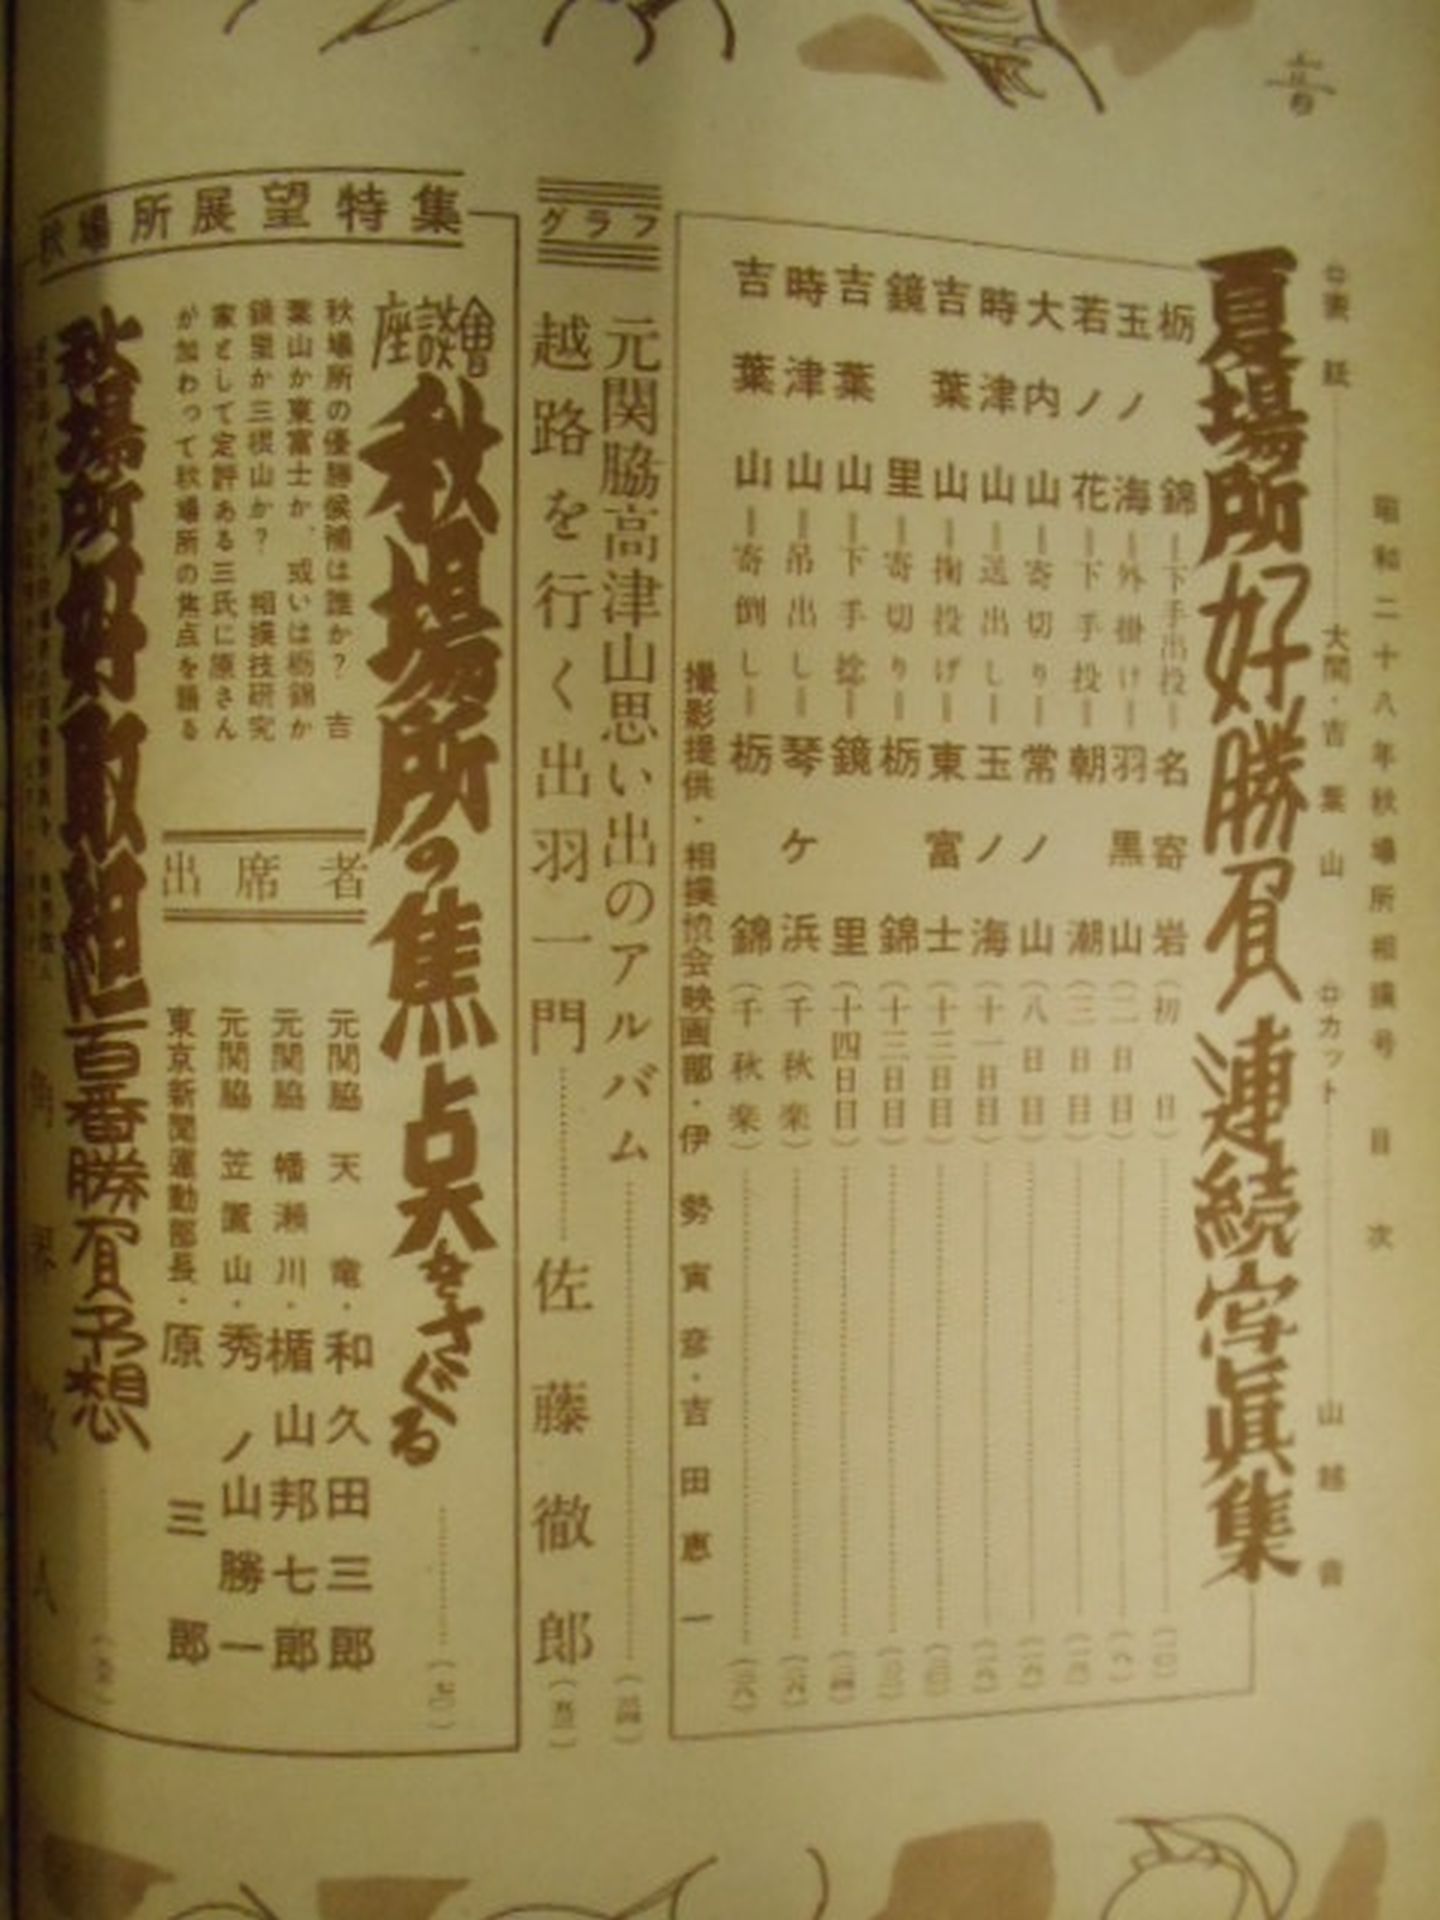 昭和二十八年秋場所相撲号 目次
表紙 大関・吉葉山 カット 山越音
夏場所好勝負連続寫眞集
栃錦=下手出投=名寄岩(初日)
玉ノ海=外掛け=羽黒山(二日目)
若ノ花=下手投=朝潮(三日目)
大内山=寄切り=常ノ山(八日目)
時津山=送出し=玉ノ海(十一日目)
吉葉山=掬投げ=東富士(十三日目)
鏡里=寄切り=栃錦(十三日目)
吉葉山=下手捻=鏡里(十四日目)
時津山=吊出し=琴ケ浜(千秋楽)
吉葉山=寄倒し=栃錦(千秋楽)
撮影提供・相撲協会映画部・伊勢寅彦・吉田恵一
グラフ
元関脇高津山思い出のアルバム
越路を行く出羽一門 佐藤徹郎
秋場所展望特集
座談會 秋場所の焦点をさぐる
秋場所の優勝候補は誰か? 吉
葉山か東富士か、或いは栃錦か
鏡里か三根山か? 相撲技研究
家として定評ある三氏に原さん
が加わって秋場所の焦点を語る
出席者
元関脇 天竜・和久田三郎
元関脇 幡瀬川・楯山邦七郎
元関脇 笠置山・秀ノ山勝一
東京新聞運動部長・原三郎
秋場所好取組百番勝負予想